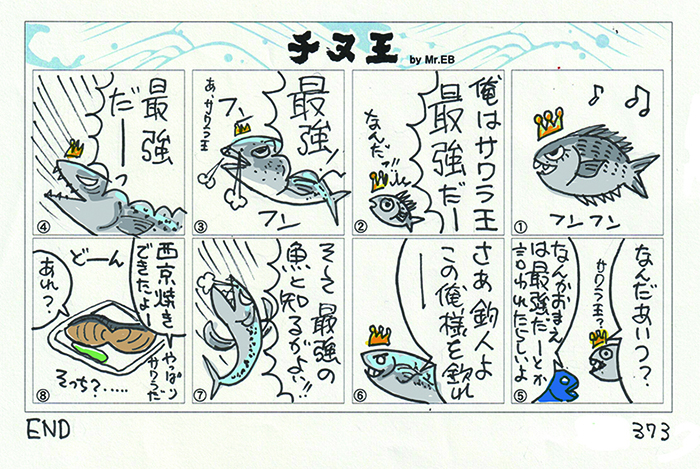 チヌ王
by Mr.EB
①
フンフン
俺はサワラ王
最強だー
なんだッ!!
②
最強
フンッ
あ、サワラ王
フン
③
最強
だーっ
④
なんだあいつ?
サワラ王?
なんかおまえ
は最強だーとか
言われたらしいよ
⑤
さあ釣人よ
この俺様を釣れ
ーー
⑥
そして最強の
魚と知るがよい!!
⑦
西京焼き
できたよー
やっぱり
サワラだ
どーん
あれ?
そっち?.....
⑧
END
373